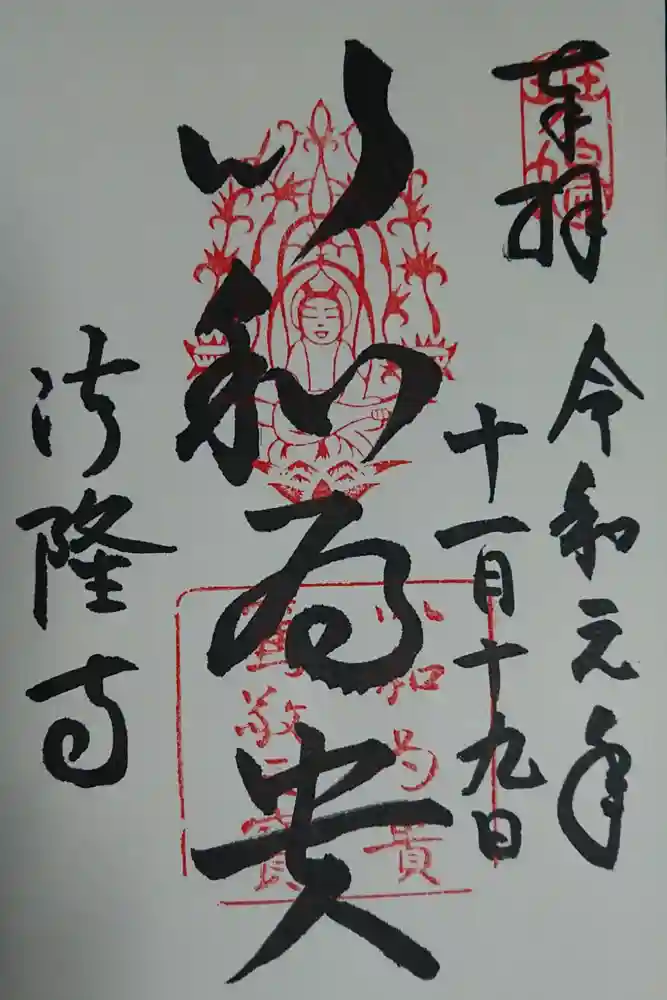 奉拝
令和元年
十一月十九日
以和為貴
法隆寺
以和為貴
篤敬三寳